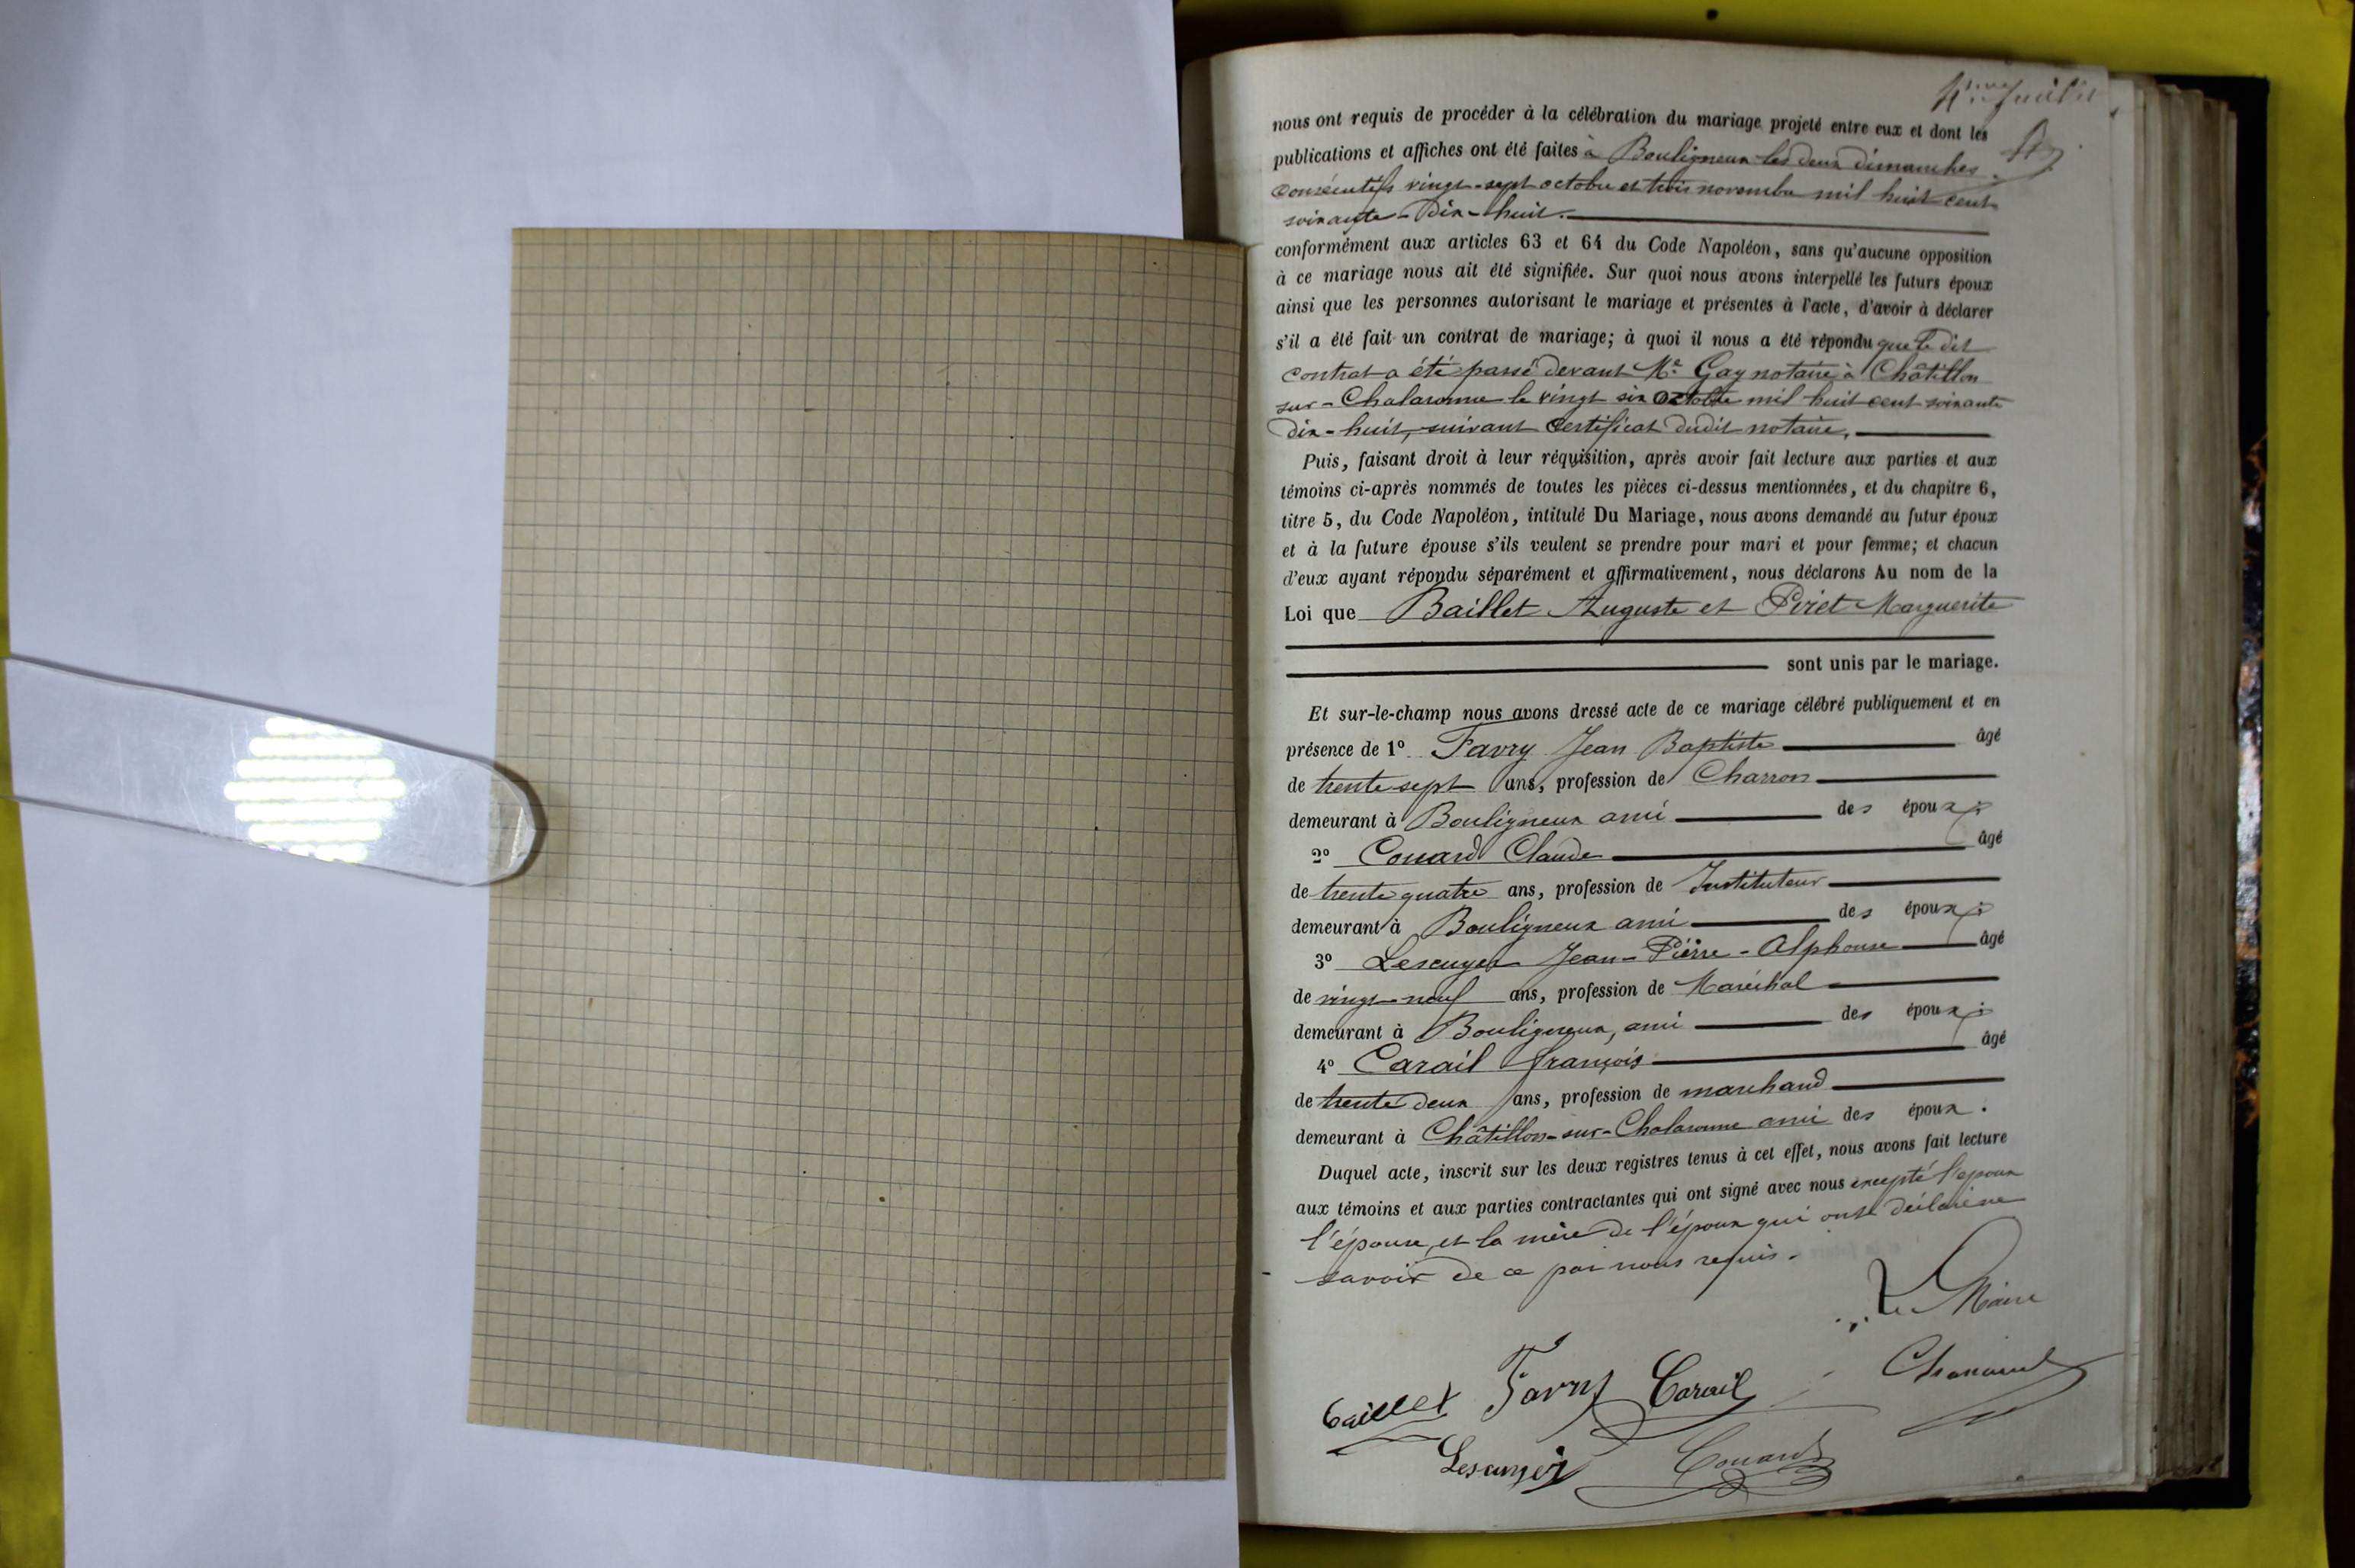 4ième feuillet
nous ont requis de procéder à la célébration du mariage projeté entre eux et dont les
publications et affiches ont été faites à Bouligneux les deux dimanches
consécutifs vingt-sept octobre et trois novembre mil huit cent
soixante-dix-huit.
conformément aux articles 63 et 64 du Code Napoléon, sans qu'aucune opposition
à ce mariage nous ait été signifiée. Sur quoi nous avons interpellé les futurs époux
ainsi que les personnes autorisant le mariage et présentes à l'acte, d'avoir à déclarer
s'il a été fait un contrat de mariage; à quoi il nous a été répondu que le dit
contrat a été passé devant Me. Gay notaire à Châtillon
sur-Chalaronne le vingt six octobre mil huit cent soixante
dix-huit, suivant certificat dudit notaire.
Puis, faisant droit à leur réquisition, après avoir fait lecture aux parties et aux
témoins ci-après nommés de toutes les pièces ci-dessus mentionnées, et du chapitre 6,
titre 5, du Code Napoléon, intitulé Du Mariage, nous avons demandé au futur époux
et à la future épouse s'ils veulent se prendre pour mari et pour femme; et chacun
d'eux ayant répondu séparément et affirmativement, nous déclarons Au nom de la
Loi que Baillet Auguste et Piret Marguerite
sont unis par le mariage.
Et sur-le-champ nous avons dressé acte de ce mariage célébré publiquement et en
présence de 1º Favry Jean Baptiste âgé
de trente sept ans, profession de Charron
demeurant à Bouligneux ami des époux;
2º Couard Claude âgé
de trente quatre ans, profession de Instituteur
demeurant à Bouligneux ami des époux;
3º Lescuyer Jean-Pierre-Alphonse âgé
de vingt-neuf ans, profession de Maréchal
demeurant à Bouligneux, ami des époux;
4º Carail françois âgé
de trente deux ans, profession de marchand
demeurant à Châtillon-sur-Chalaronne ami des époux.
Duquel acte, inscrit sur les deux registres tenus à cet effet, nous avons fait lecture
aux témoins et aux parties contractantes qui ont signé avec nous excepté l'époux
l'épouse, et la mère de l'époux qui ont déclaré ne
savoir de ce par nous requis.
Le Maire
Baillet Favry Carail
Lescuyer Couard